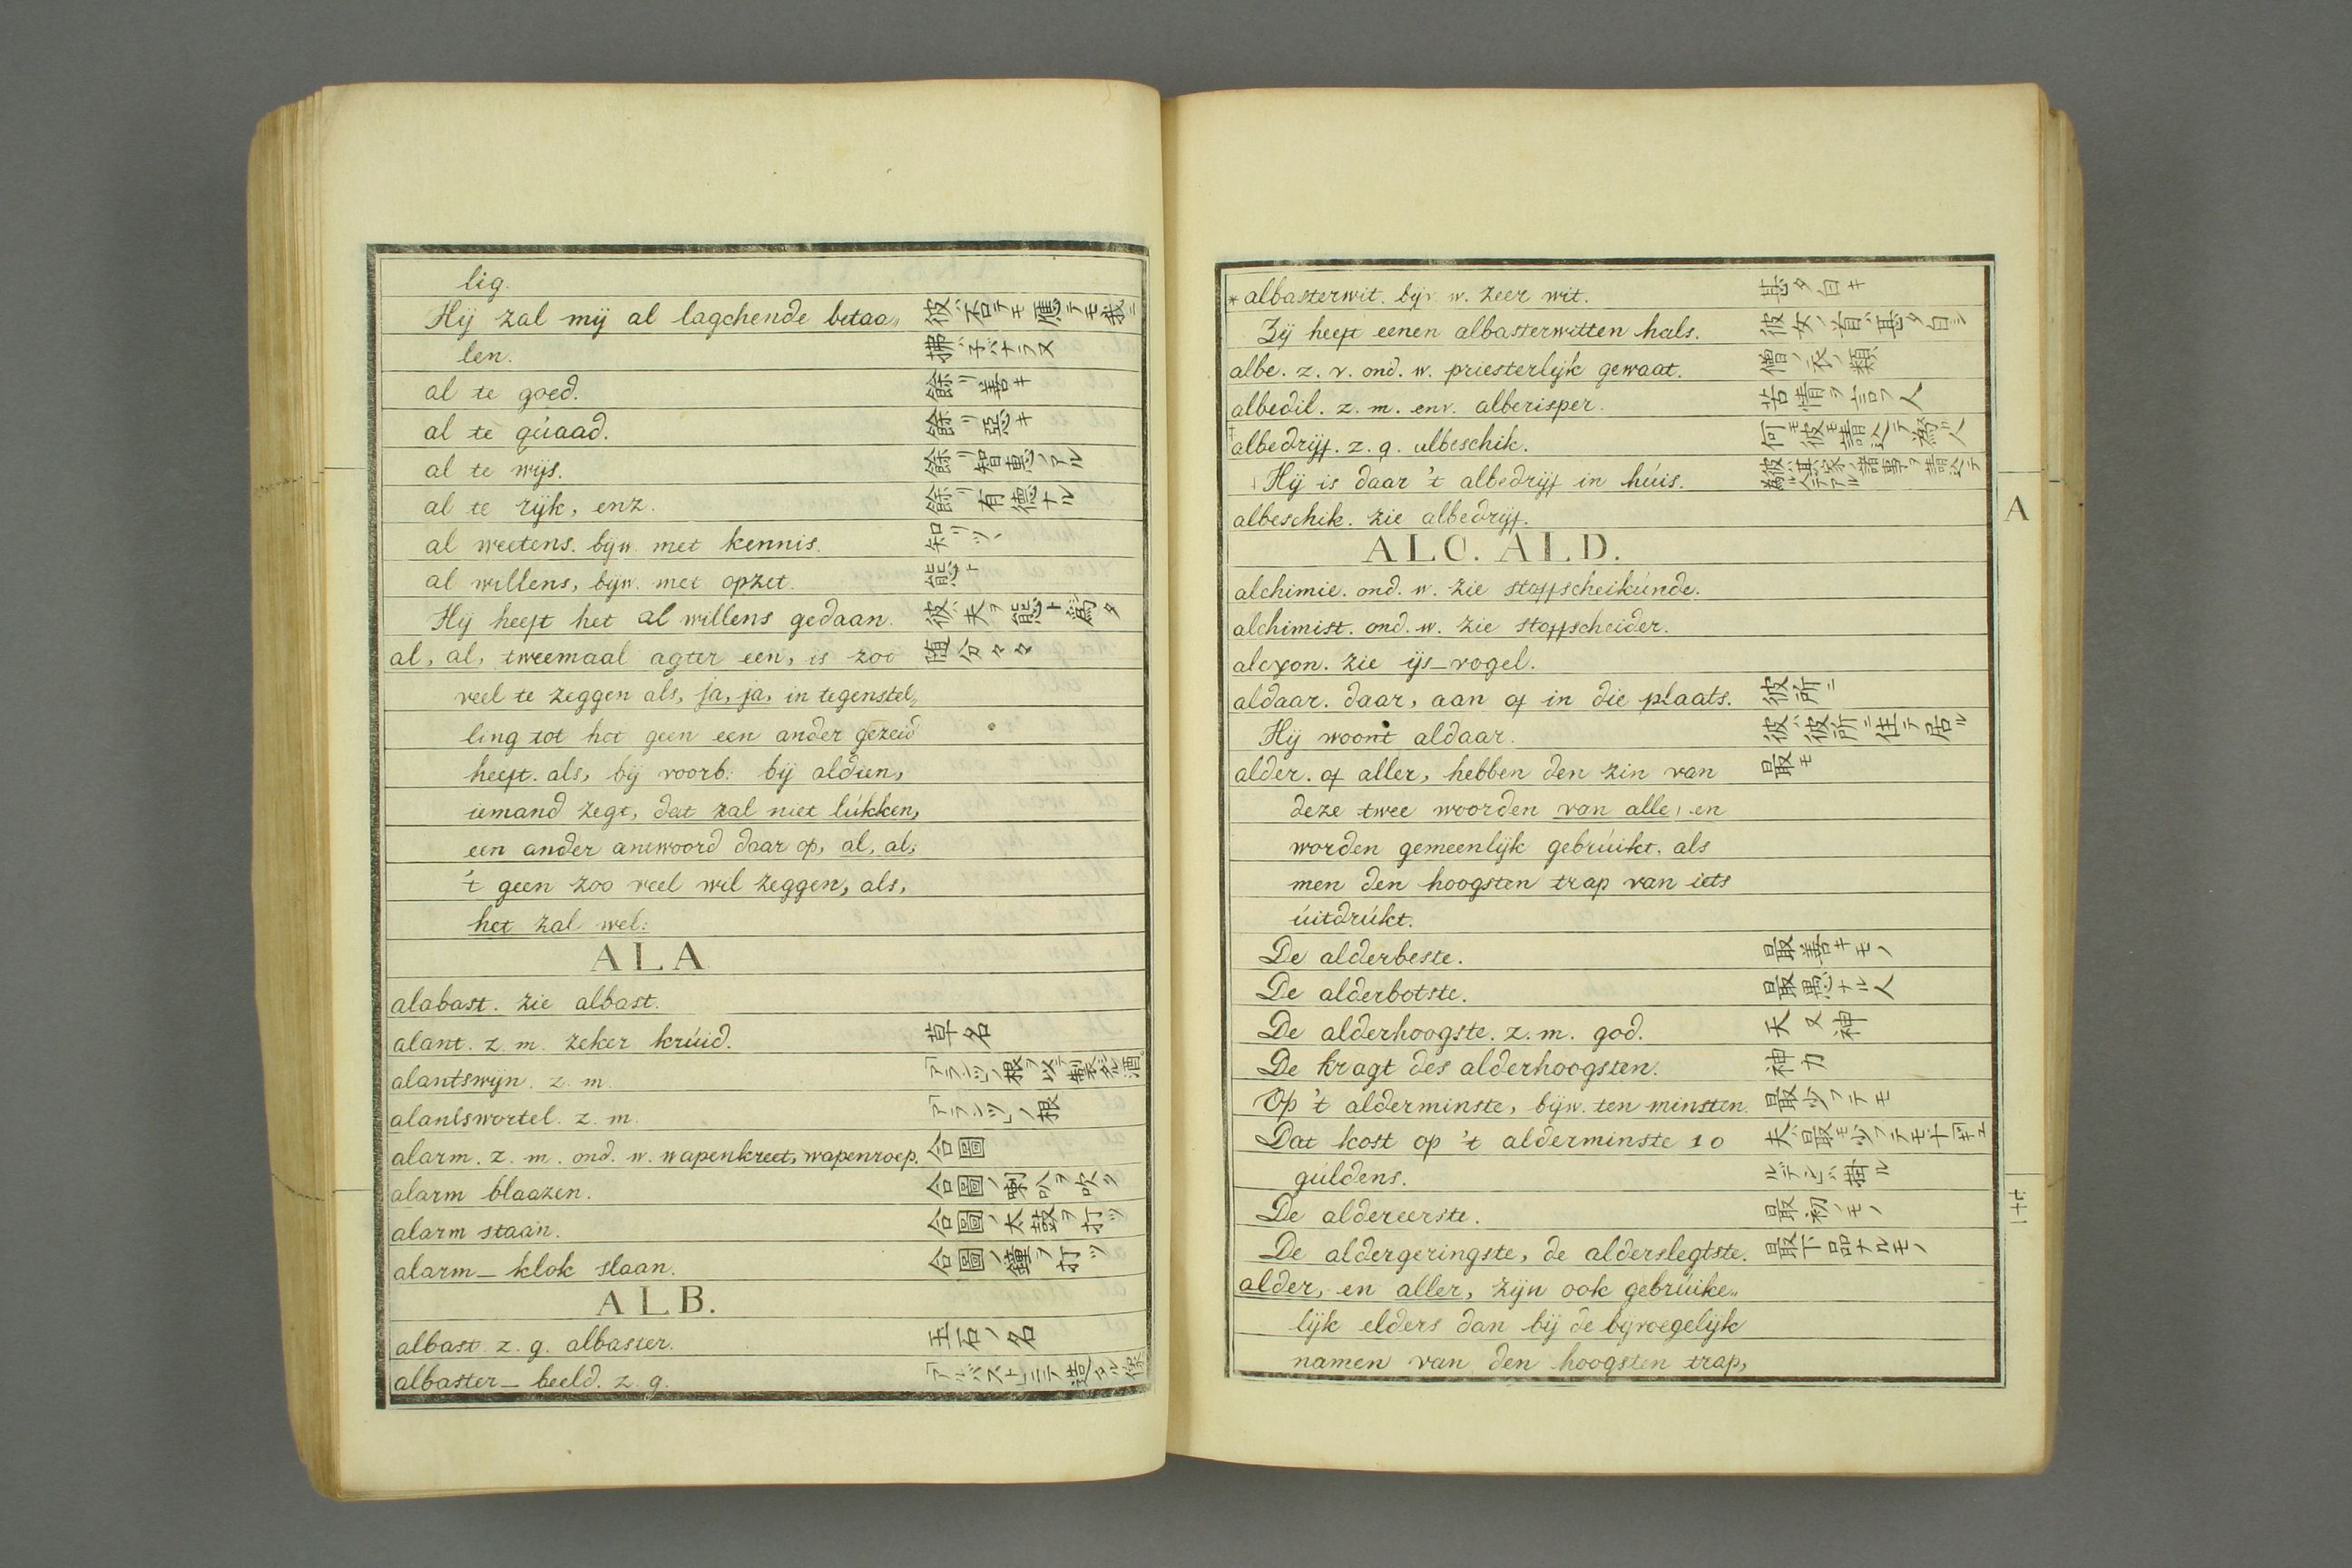 lig.
Hij zal mij al lagchende betaa„ 彼ハ否テモ應テモ我ニ
len. 拂ハ子バナラヌ
al te goed. 餘リ善キ
al te qúaad. 餘リ惡キ
al te wijs. 餘リ智惠ノアル
al te rijk, enz. 餘リ有德ナル
al weetens. bijw. met kennis. 知ツヽ
al willens, bijw. met opzet. 態ト
Hij heeft het al willens gedaan. 彼ハ夫ヲ態ト為タ
al, al, tweemaal agter een, is zoo 随分々々
veel te zeggen als, ja, ja, in tegenstel„
ling tot het geen een ander gezeid
heeft. als, bij voorb: bij aldien,
iemand zegt, dat zal niet lúkken,
een ander antwoord daar op, al, al,
't geen zoo veel wil zeggen, als,
het zal wel:
ALA
alabast. zie albast.
alant. z. m. zeker krúid. 草名
alantswijn. z. m. 「アランツ」ノ根ヲ以テ製タル酒
alantswortel. z. m. 「アランツ」ノ根
alarm. z. m. ond. w. wapenkreet, wapenroep. 合圖
alarm blaazen. 合圖ノ喇叭ヲ吹ク
alarm staan. 合圖ノ太鼓ヲ打ツ
alarm_ klok slaan. 合圖ノ鐘ヲ打ツ
ALB.
albast. z. g. albaster. 玉石ノ名
albaster_ beeld. z. g. 「アルバスト」ニテ造タル像
*albasterwit. bijv. w. zeer wit. 甚タ白キ
Zij heeft eenen albasterwitten hals. 彼女ノ首ハ甚タ白シ
albe. z. v. ond. w. priesterlijk gewaat. 僧ノ衣ノ類
albedil. z. m. env. alberisper. 苦情ヲ言フ人
albedrijf. z. g. albeschik. 何モ彼モ請込テ為ル人
Hij is daar 't albedrijf in húis. 彼ハ其家ノ諸事ヲ請込テ為ル人テアル
albeschik. zie albedrijf.
ALC. ALD.
alchimie. ond. w. zie stoffscheikúnde.
alchimist. ond. w. zie stoffscheider.
alcyon. zie ijs_vogel.
aldaar. daar, aan of in die plaats. 彼所ニ
Hij woont aldaar. 彼ハ彼所ニ住テ居ル
alder. of aller, hebben den zin van 最モ
deze twee woorden van alle, en
worden gemeenlijk gebrúikt, als
men den hoogsten trap van iets
úitdrúkt.
De alderbeste. 最善キモノ
De alderbotste. 最愚ナル人
De alderhoogste. z. m. god. 天 又 神
De kragt des alderhoogsten. 神力
Op 't alderminste, bijw. ten minsten. 最少フテモ
Dat kost op 't alderminste 10 夫ハ最モ少フテモ十「ギュ
gúldens. ルデン」掛ル
De aldereerste. 最初ノモノ
De aldergeringste, de alderslegtste. 最下品ナルモノ
alder, en aller, zijn ook gebrúike„
lijk elders dan bij de bijvoegelijk
namen van den hoogsten trap,
A